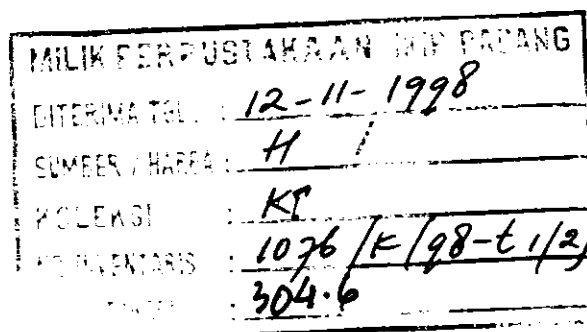 MILIK PERPUSTAKAAN IKIP PADANG
DITERIMA TGL. : 12-11-1998
SUMBER / HARGA : H /
KOLEKSI : KI
INVENTARIS : 1076/K/98-t1/2
: 304.6